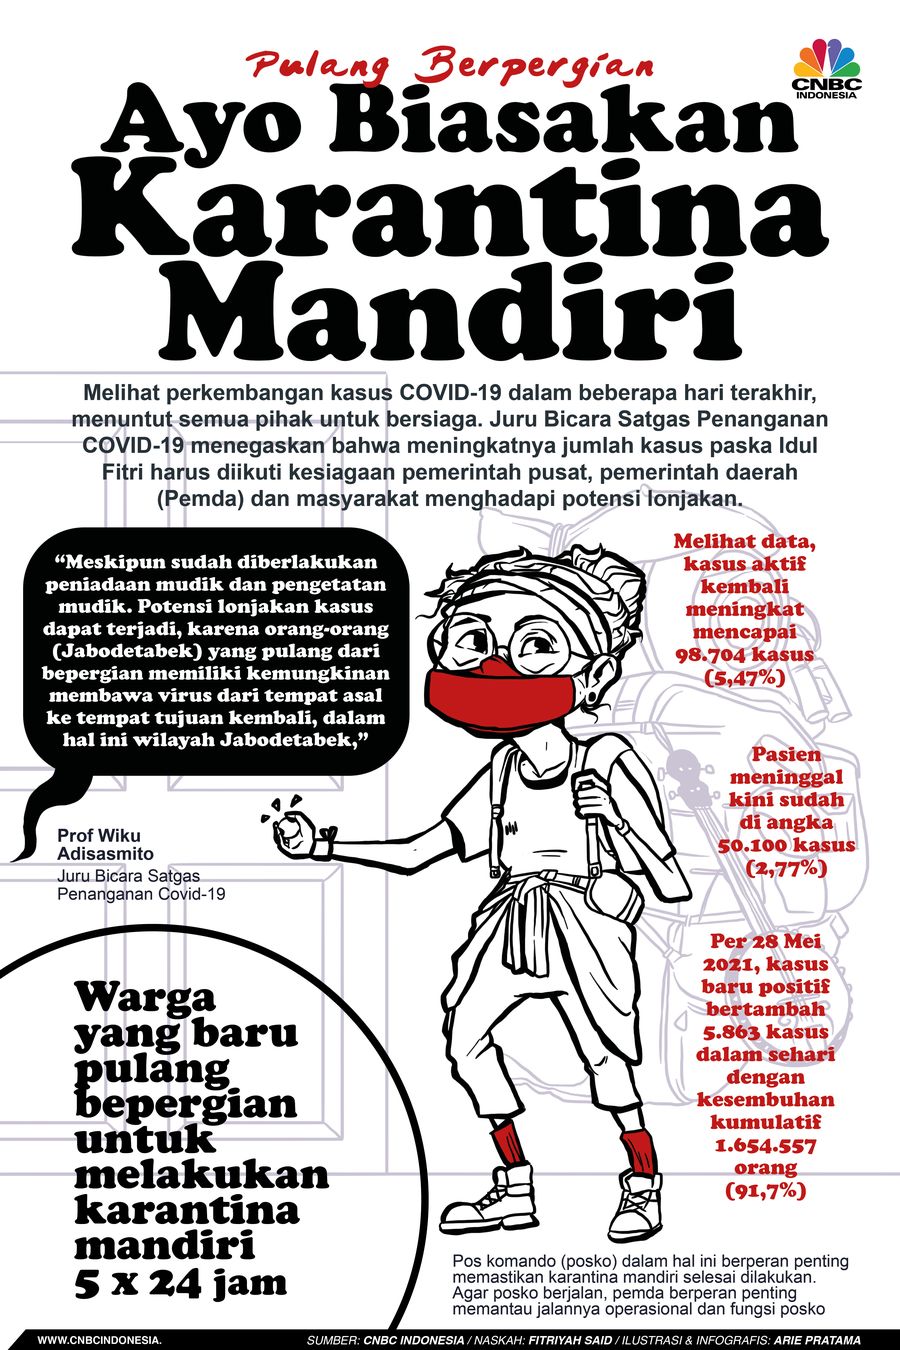 Pulang Berpergian
CNBC
INDONESIA
Ayo Biasakan
Karantina
Mandiri
Melihat perkembangan kasus COVID-19 dalam beberapa hari terakhir,
menuntut semua pihak untuk bersiaga. Juru Bicara Satgas Penanganan
COVID-19 menegaskan bahwa meningkatnya jumlah kasus paska Idul
Fitri harus diikuti kesiagaan pemerintah pusat, pemerintah daerah
(Pemda) dan masyarakat menghadapi potensi lonjakan.
“Meskipun sudah diberlakukan
peniadaan mudik dan pengetatan
mudik. Potensi lonjakan kasus
dapat terjadi, karena orang-orang
(Jabodetabek) yang pulang dari
bepergian memiliki kemungkinan
membawa virus dari tempat asal
ke tempat tujuan kembali, dalam
hal ini wilayah Jabodetabek,”
Prof Wiku
Adisasmito
Juru Bicara Satgas
Penanganan Covid-19
Melihat data,
kasus aktif
kembali
meningkat
mencapai
98.704 kasus
(5,47%)
Pasien
meninggal
kini sudah
di angka
50.100 kasus
(2,77%)
Per 28 Mei
2021, kasus
baru positif
bertambah
5.863 kasus
dalam sehari
dengan
kesembuhan
kumulatif
1.654.557
orang
(91,7%)
Warga
yang baru
pulang
bepergian
untuk
melakukan
karantina
mandiri
5 x 24 jam
Pos komando (posko) dalam hal ini berperan penting
memastikan karantina mandiri selesai dilakukan.
Agar posko berjalan, pemda berperan penting
memantau jalannya operasional dan fungsi posko
WWW.CNBCINDONESIA.
SUMBER: CNBC INDONESIA / NASKAH: FITRIYAH SAID / ILUSTRASI & INFOGRAFIS: ARIE PRATAMA